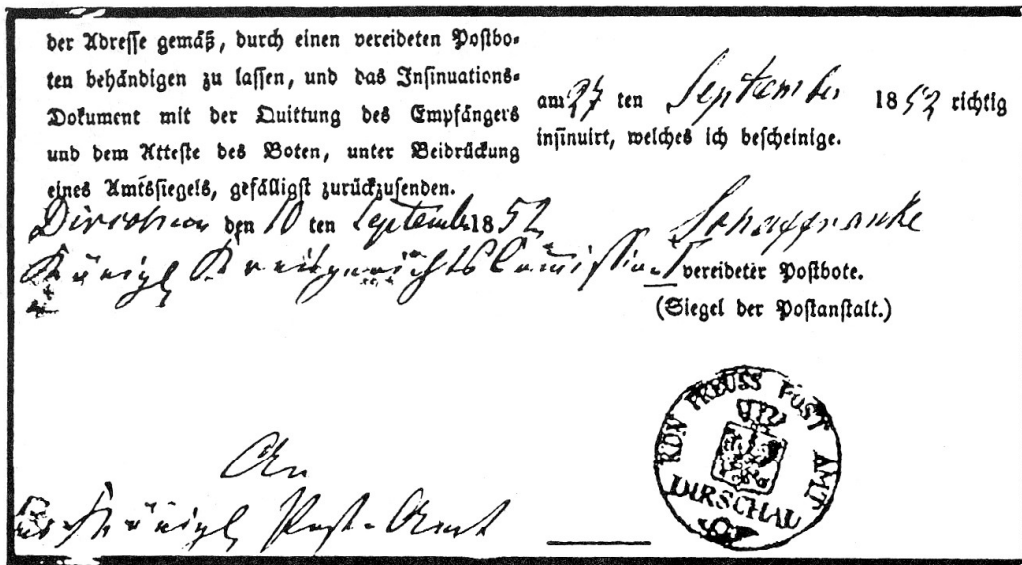 der Adresse gemäß, durch einen vereideten Postbo-
ten behändigen zu lassen, und das Insinuations-
Dokument mit der Quittung des Empfängers
und dem Atteste des Boten, unter Beidrückung
eines Amtssiegels, gefälligst zurückzusenden.
den 10 ten September 1852
Königl Kreisgerichts Commission
An
Königl Post-Amt
am 27 ten September 1852 richtig
insinuirt, welches ich bescheinige.
vereideter Postbote.
(Siegel der Postanstalt.)
KÖN PREUSS POST AMT
DIRSCHAU